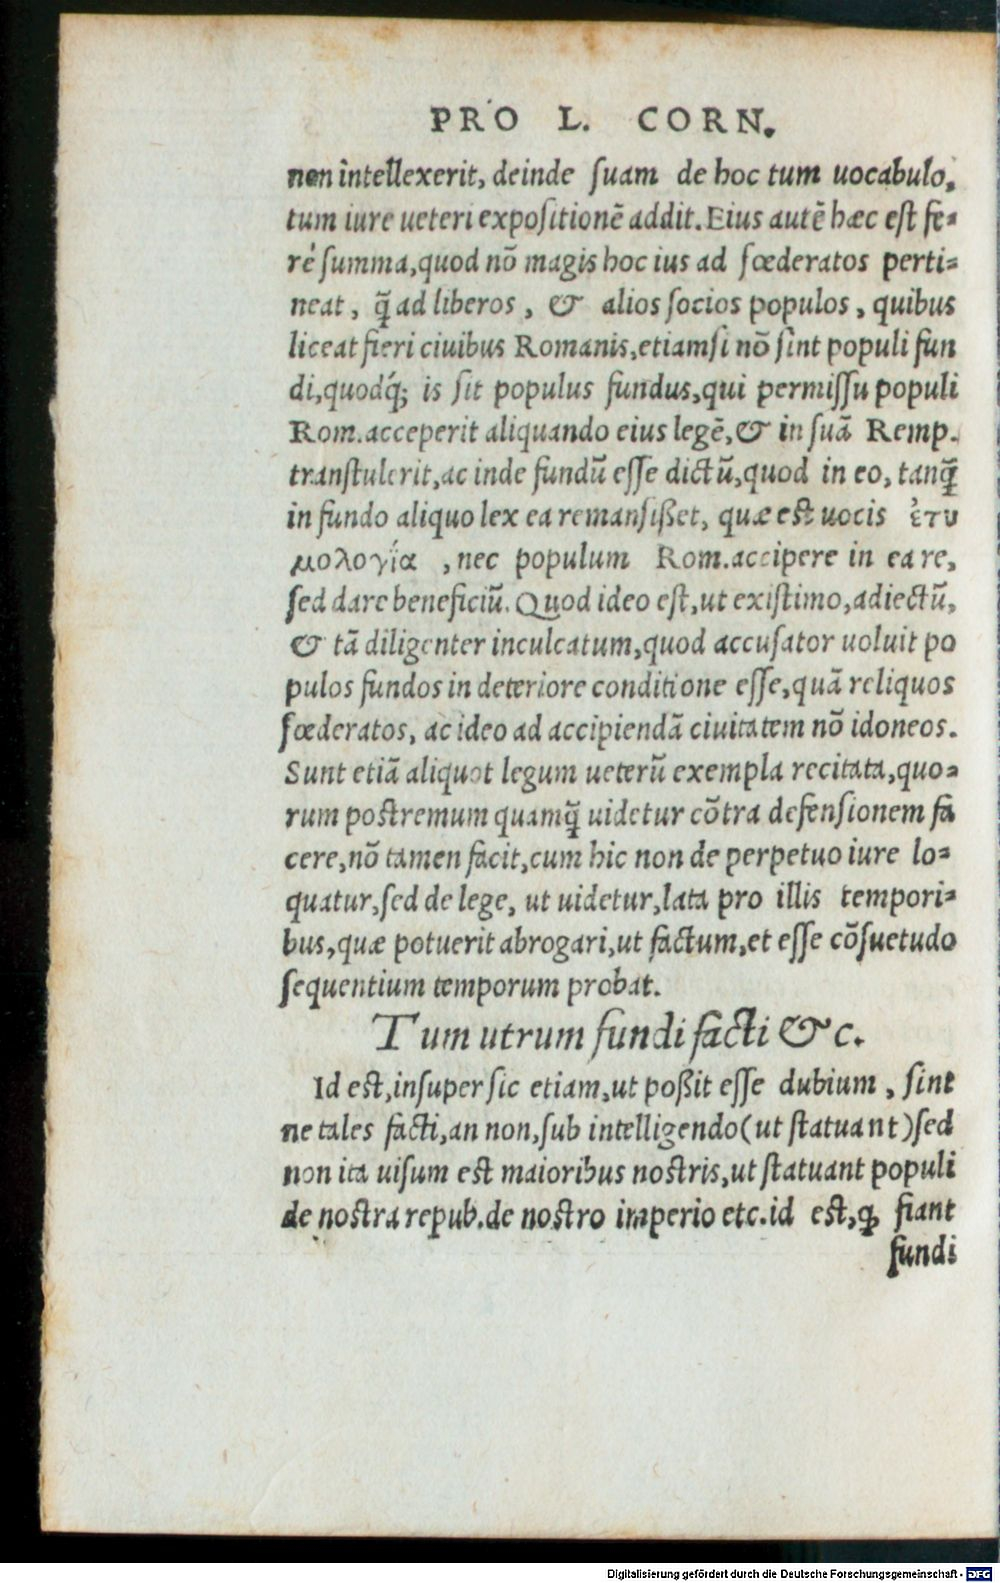 PRO L. CORN.
non intellexerit, deinde ſuam de hoc tum uocabulo,
tum iure ueteri expoſitionē addit. Eius autē hæc eſt fe-
rè ſumma, quod nō magis hoc ius ad fœderatos perti-
neat, q̄ ad liberos, & alios ſocios populos, quibus
liceat fieri ciuibus Romanis, etiamſi nō ſint populi fun
di, quodq́; is ſit populus fundus, qui permiſſu populi
Rom. acceperit aliquando eius legē, & in ſuā Remp.
tranſtulerit, ac inde fundū eſſe dictū, quod in eo, tanq̄
in fundo aliquo lex ea remanſißet, quæ est uocis ἐτυ
μολογία, nec populum Rom. accipere in ea re,
ſed dare beneficiū. Quod ideo eſt, ut exiſtimo, adiectū,
& tā diligenter inculcatum, quod accuſator uoluit po
pulos fundos in deteriore conditione eſſe, quā reliquos
fœderatos, ac ideo ad accipiendā ciuitatem nō idoneos.
Sunt etiā aliquot legum ueterū exempla recitata, quo-
rum poſtremum quamq̄ uidetur cōtra defenſionem fa
cere, nō tamen facit, cum hic non de perpetuo iure lo-
quatur, ſed de lege, ut uidetur, lata pro illis tempori-
bus, quæ potuerit abrogari, ut factum, et eſſe cōſuetudo
ſequentium temporum probat.
Tum utrum fundi facti & c.
Id est, inſuper ſic etiam, ut poßit eſſe dubium, ſint
ne tales facti, an non, ſub intelligendo (ut ſtatuant) ſed
non ita uiſum est maioribus noſtris, ut ſtatuant populi
de noſtra repub. de noſtro imperio etc. id eſt, ꝙ fiant
fundi
Digitalisierung gefördert durch die Deutsche Forschungsgemeinschaft - DFG